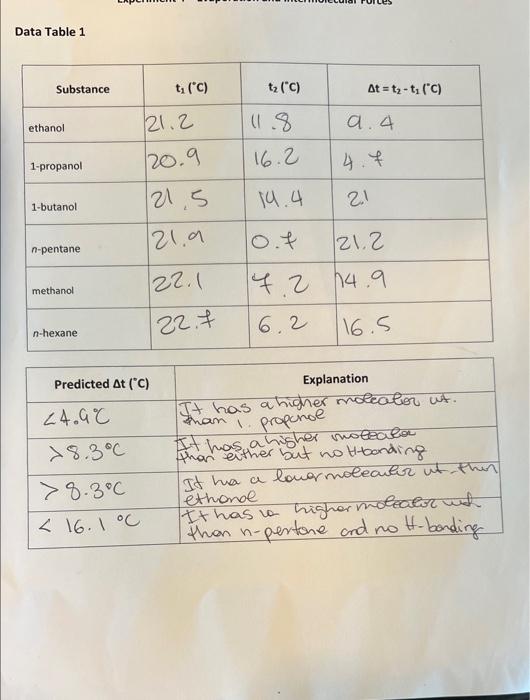 Evaporation and Intermolecular Forces
Data Table 1
Substance t₁ (°C) t₂ (°C) Δt = t₂ - t₁ (°C)
ethanol 21.2 11.8 9.4
1-propanol 20.9 16.2 4.7
1-butanol 21.5 19.4 2.1
n-pentane 21.9 0.7 21.2
methanol 22.1 7.2 14.9
n-hexane 22.7 6.2 16.5
Predicted Δt (°C) Explanation
<4.9°C It has a higher molecaler wt.
than 1. propanol
>8.3°C It has a higher
than either but no H-bonding
>8.3°C It has a lower moleculer wt than
ethanol
< 16.1 °C It has a higher
than n-pentane and no H-bonding